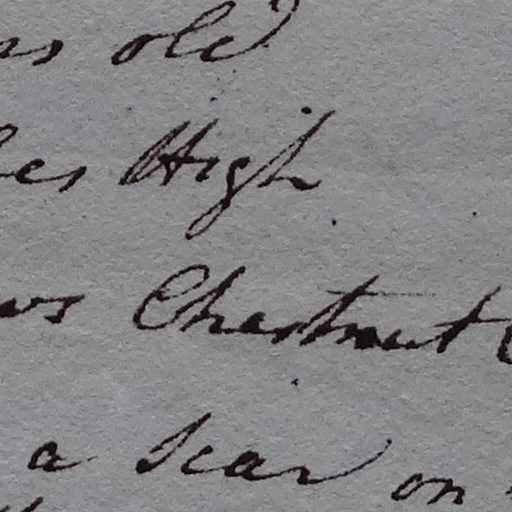 old
High
Chestnut
a Scar on